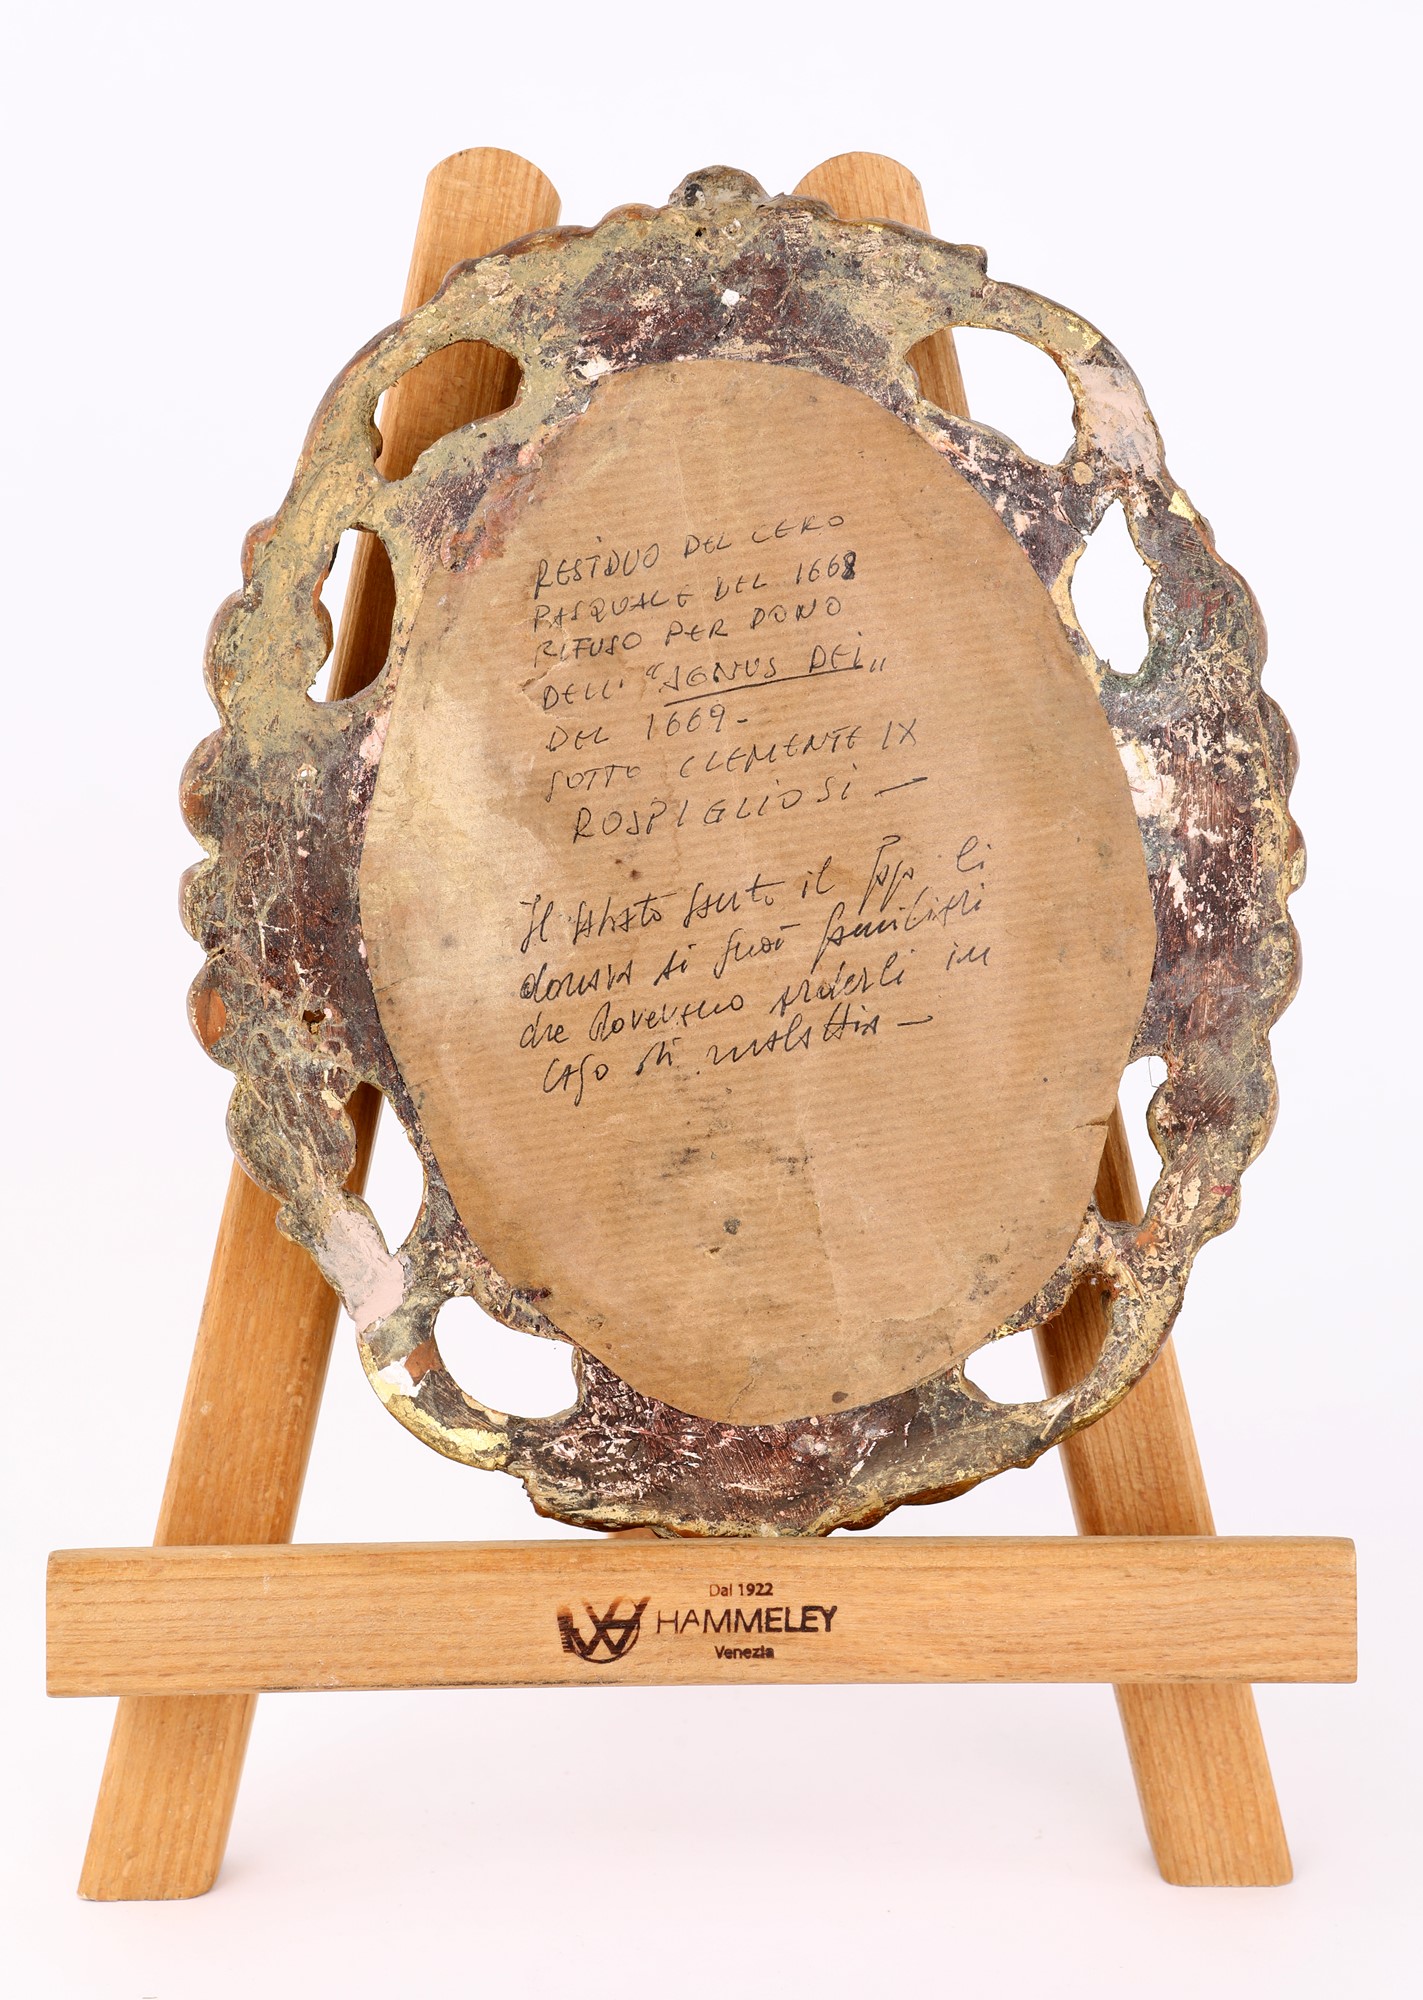 RESIDUO DEL CERO
PASQUALE DEL 1668
RIFUSO PER DONO
DELL' "AGNUS DEI"
DEL 1669-
SOTTO CLEMENTE IX
ROSPIGLIOSI —
Il sabato santo il Papa li
donava ai suoi famigliari
che dovevano arderli in
caso di malattia —
Dal 1922
HAMMELEY
Venezia